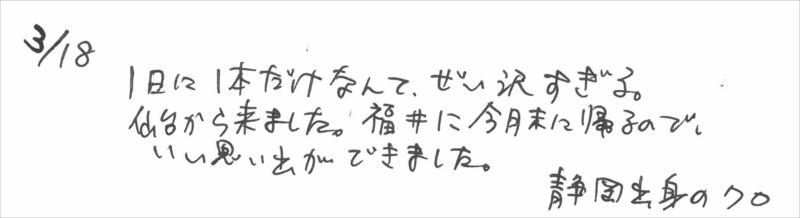 3/18
1日に1本だけなんて、ぜい沢すぎる。
仙台から来ました。福井に今月末に帰るので、
いい思い出ができました。
静岡出身のクロ